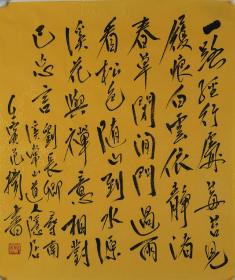 一路經行處莓苔見
履痕白雲依靜渚
春草閉閒門過雨
看松色隨山到水源
溪花與禪意相對
已忘言
劉長卿尋南
溪常山道人隱居
寅范書